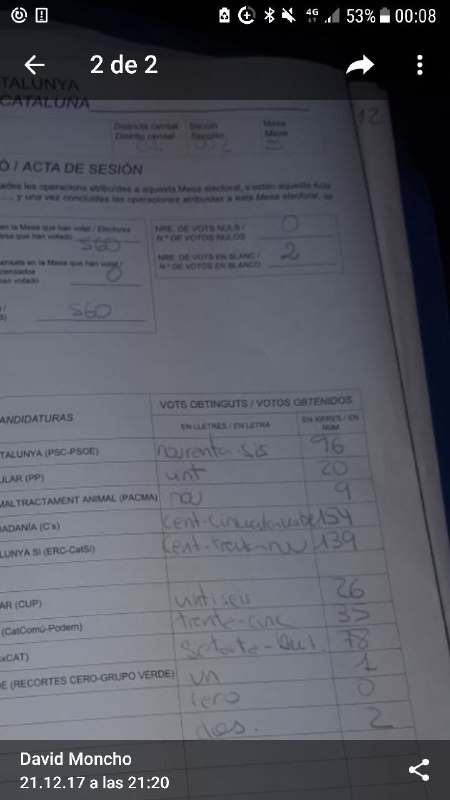 4G 53% 00:08
2 de 2
TALUNYA
CATALUÑA
12
Districte censal
Distrito censal
Secció
Sección
Mesa
Mesa
3
Ó / ACTA DE SESIÓN
ades les operacions atribuïdes a aquesta Mesa electoral, s'estén aquesta Acta
, y una vez concluidas las operaciones atribuidas a esta Mesa electoral, se
en la Mesa que han votat / Electores
que han votado 560
NRE. DE VOTS NULS /
N.º DE VOTOS NULOS 0
censats en la Mesa que han votat /
censados
han votado 0
NRE. DE VOTS EN BLANC /
N.º DE VOTOS EN BLANCO 2
560
ANDIDATURAS
VOTS OBTINGUTS / VOTOS OBTENIDOS
EN LLETRES / EN LETRA
EN XIFRES / EN NÚM.
TALUNYA (PSC-PSOE) noranta-sis 96
ULAR (PP) 20
MALTRACTAMENT ANIMAL (PACMA) nou 9
ADANÍA (C's) 154
LUNYA SÍ (ERC-CatSí) 139
AR (CUP) 26
(CatComú-Podem) 35
xCAT) 78
E (RECORTES CERO-GRUPO VERDE) un 1
cero 0
dos. 2
David Moncho
21.12.17 a las 21:20